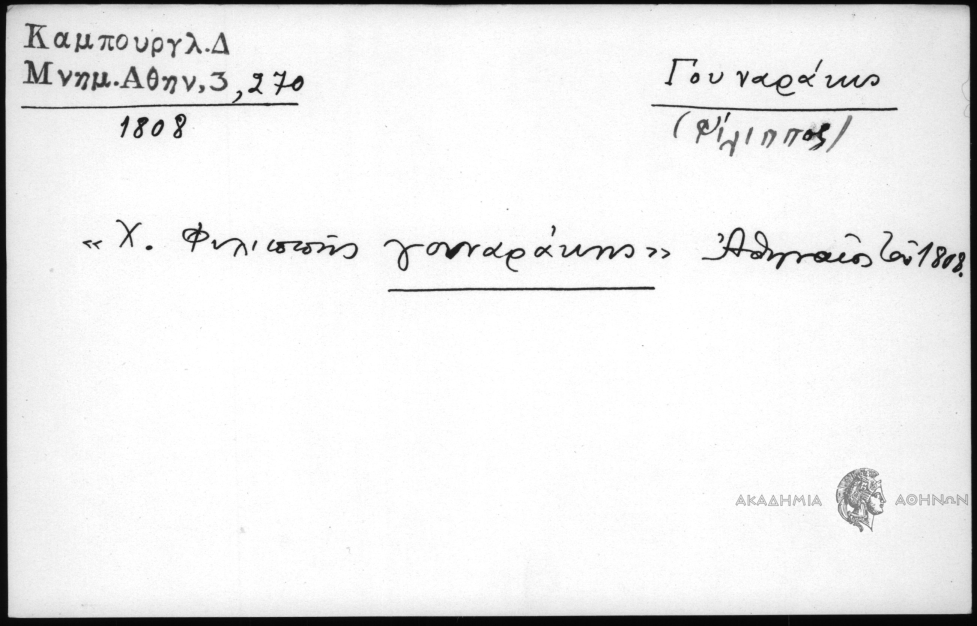 Καμπουργλ.Δ
Μνημ.Αθην,3,270
1808
Γουναράκης
(Φίλιππος)
« Χ. Φιλιππῆς γουναράκης» Ἀθηναῖος τοῦ 1808.
ΑΚΑΔΗΜΙΑ ΑΘΗΝΩΝ